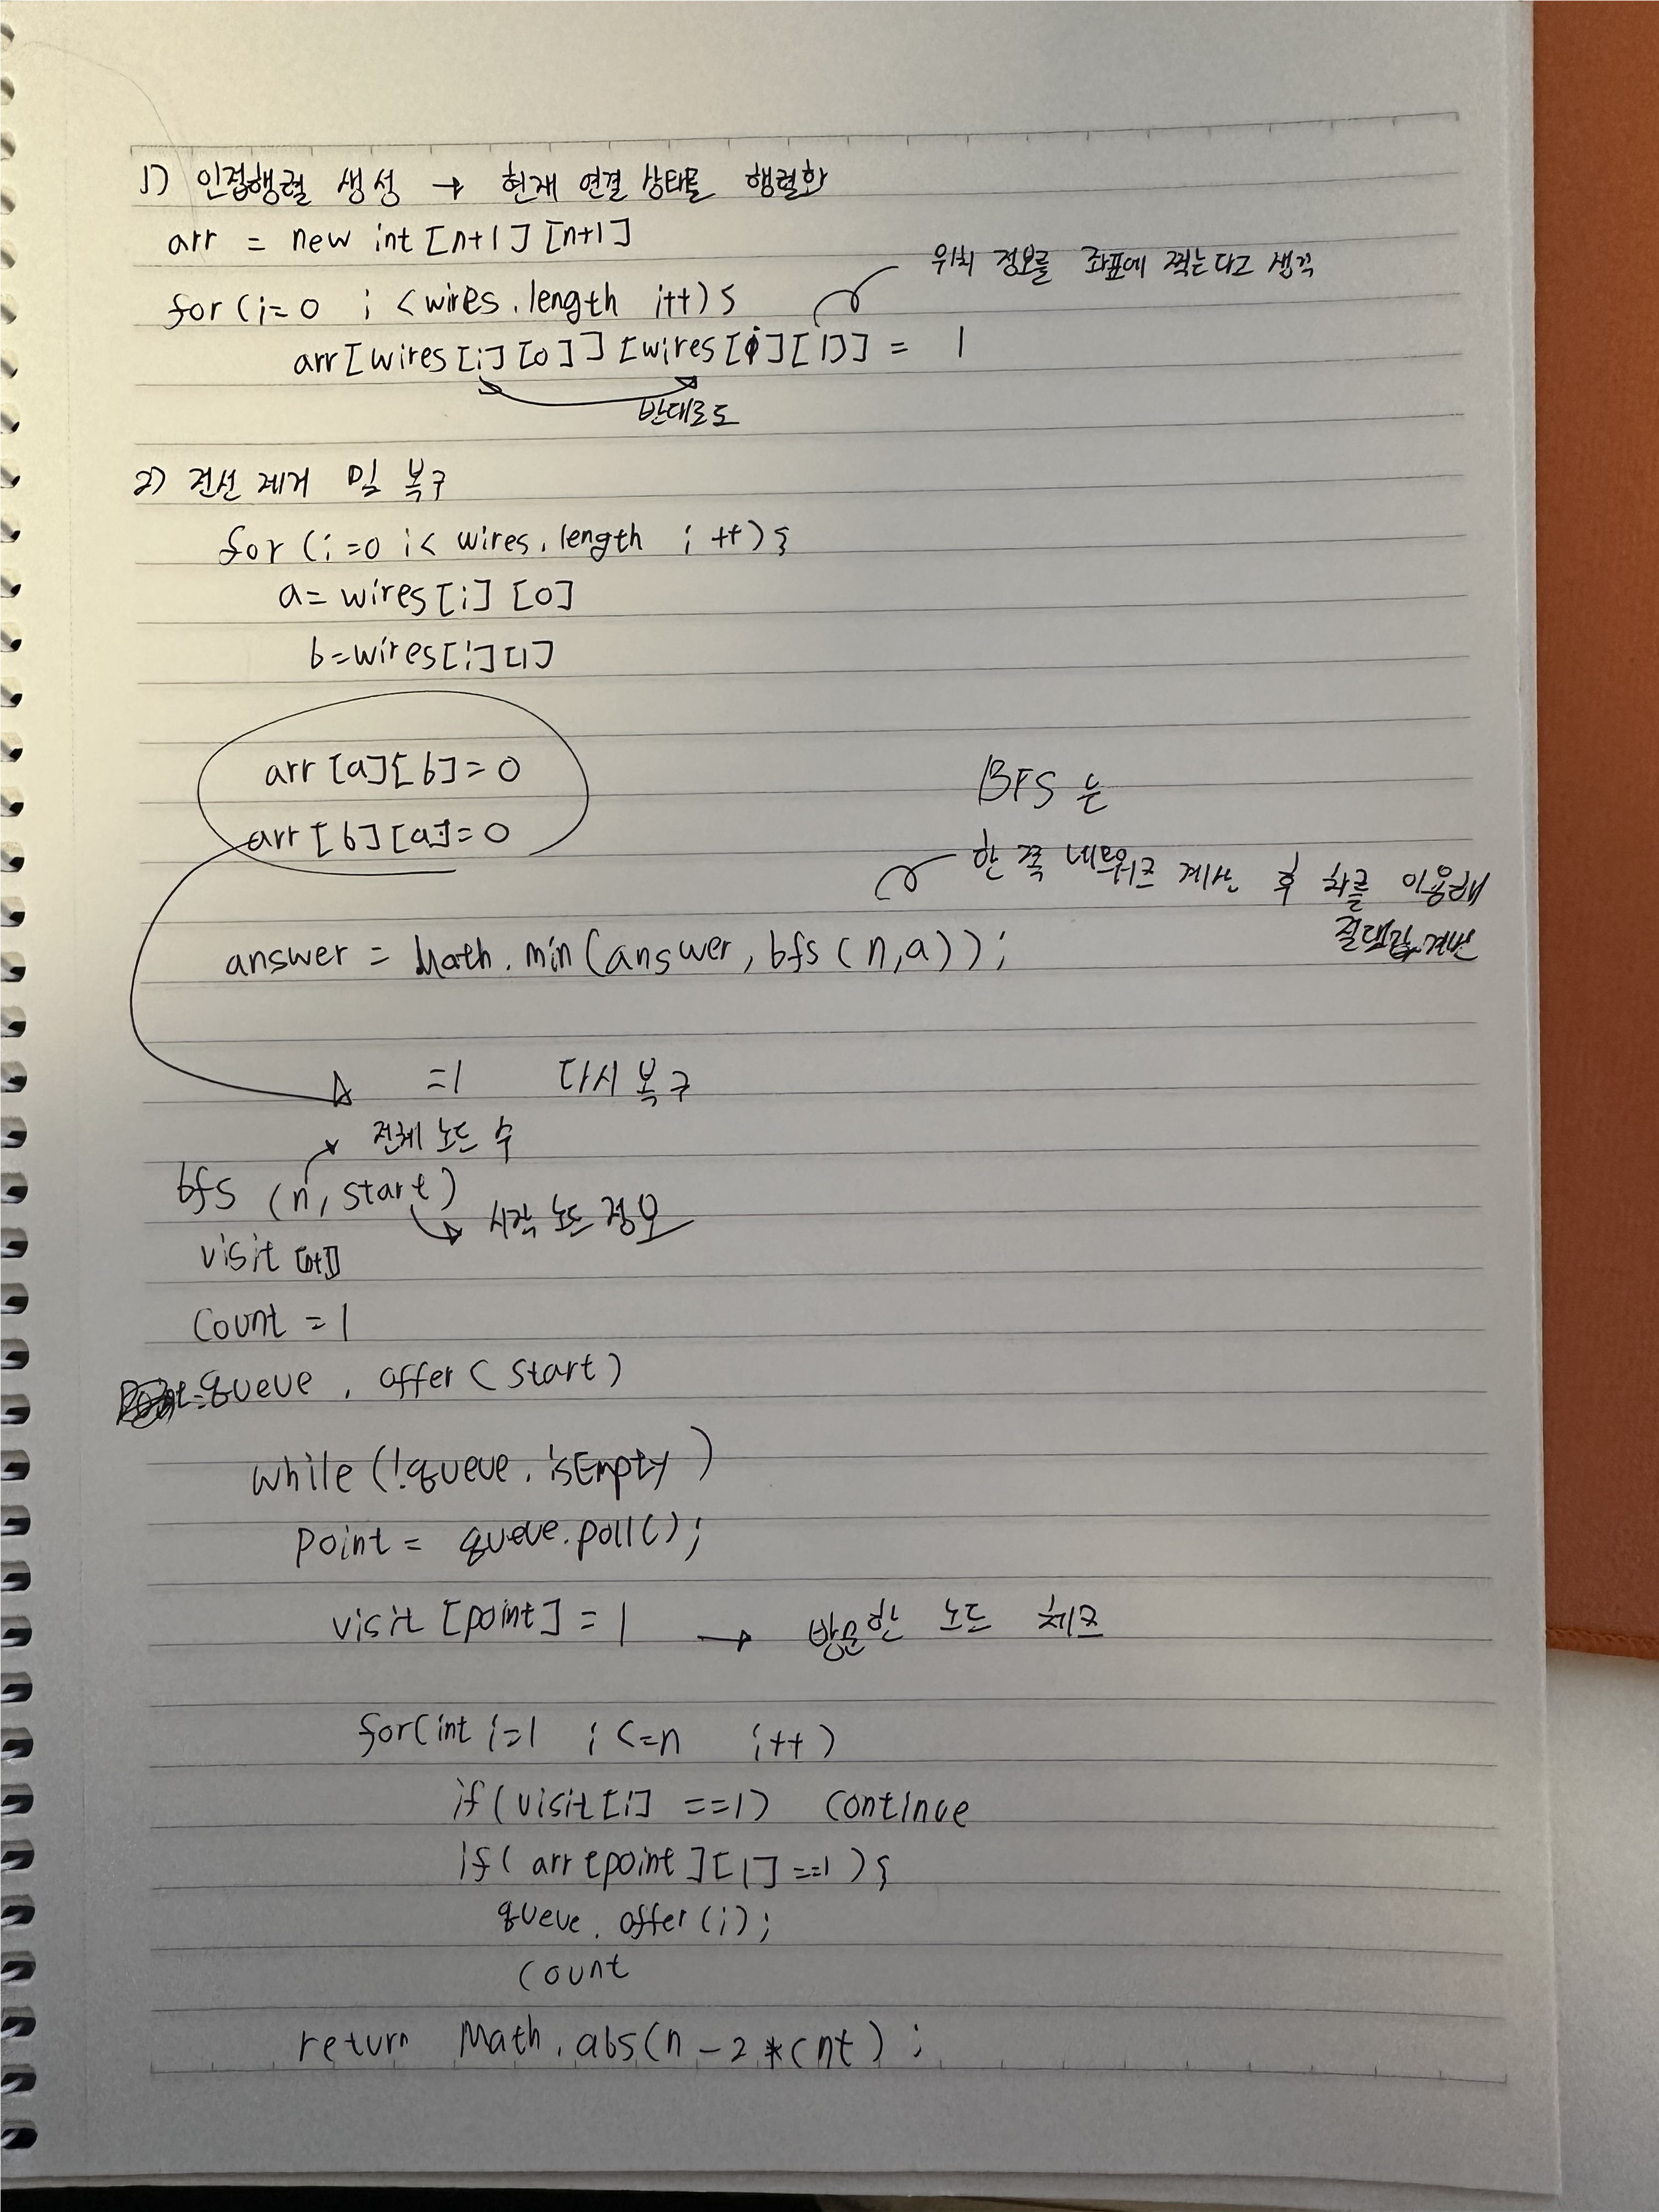 1) 인접행렬 생성 → 현재 연결 상태를 행렬화
arr = new int [n+1] [n+1]
위치 정보를 좌표에 찍는다고 생각
for (i=0 i < wires.length i++) {
arr[wires[i][0]] [wires[i][1]] = 1
반대로도
2) 전선 제거 및 복구
for (i=0 i< wires.length i ++) {
a= wires[i] [0]
b=wires[i][1]
arr [a][b]=0
arr [b][a]=0
BFS 는
한 쪽 네트워크 계산 후 차를 이용해
절댓값 계산
answer = Math.min(answer, bfs(n,a));
=1 다시 복구
전체 노드 수
bfs (n, start)
시작 노드 정보
visit [n+1]
Count = 1
queue.offer(start)
while (!queue.isEmpty)
Point = queue.poll();
visit [point] = 1 → 방문한 노드 체크
for(int i=1 i <=n i++)
if(visit[i] ==1) continue
if( arr[point][1] ==1 ) {
queue.offer(i);
count
return Math.abs(n-2*cnt);